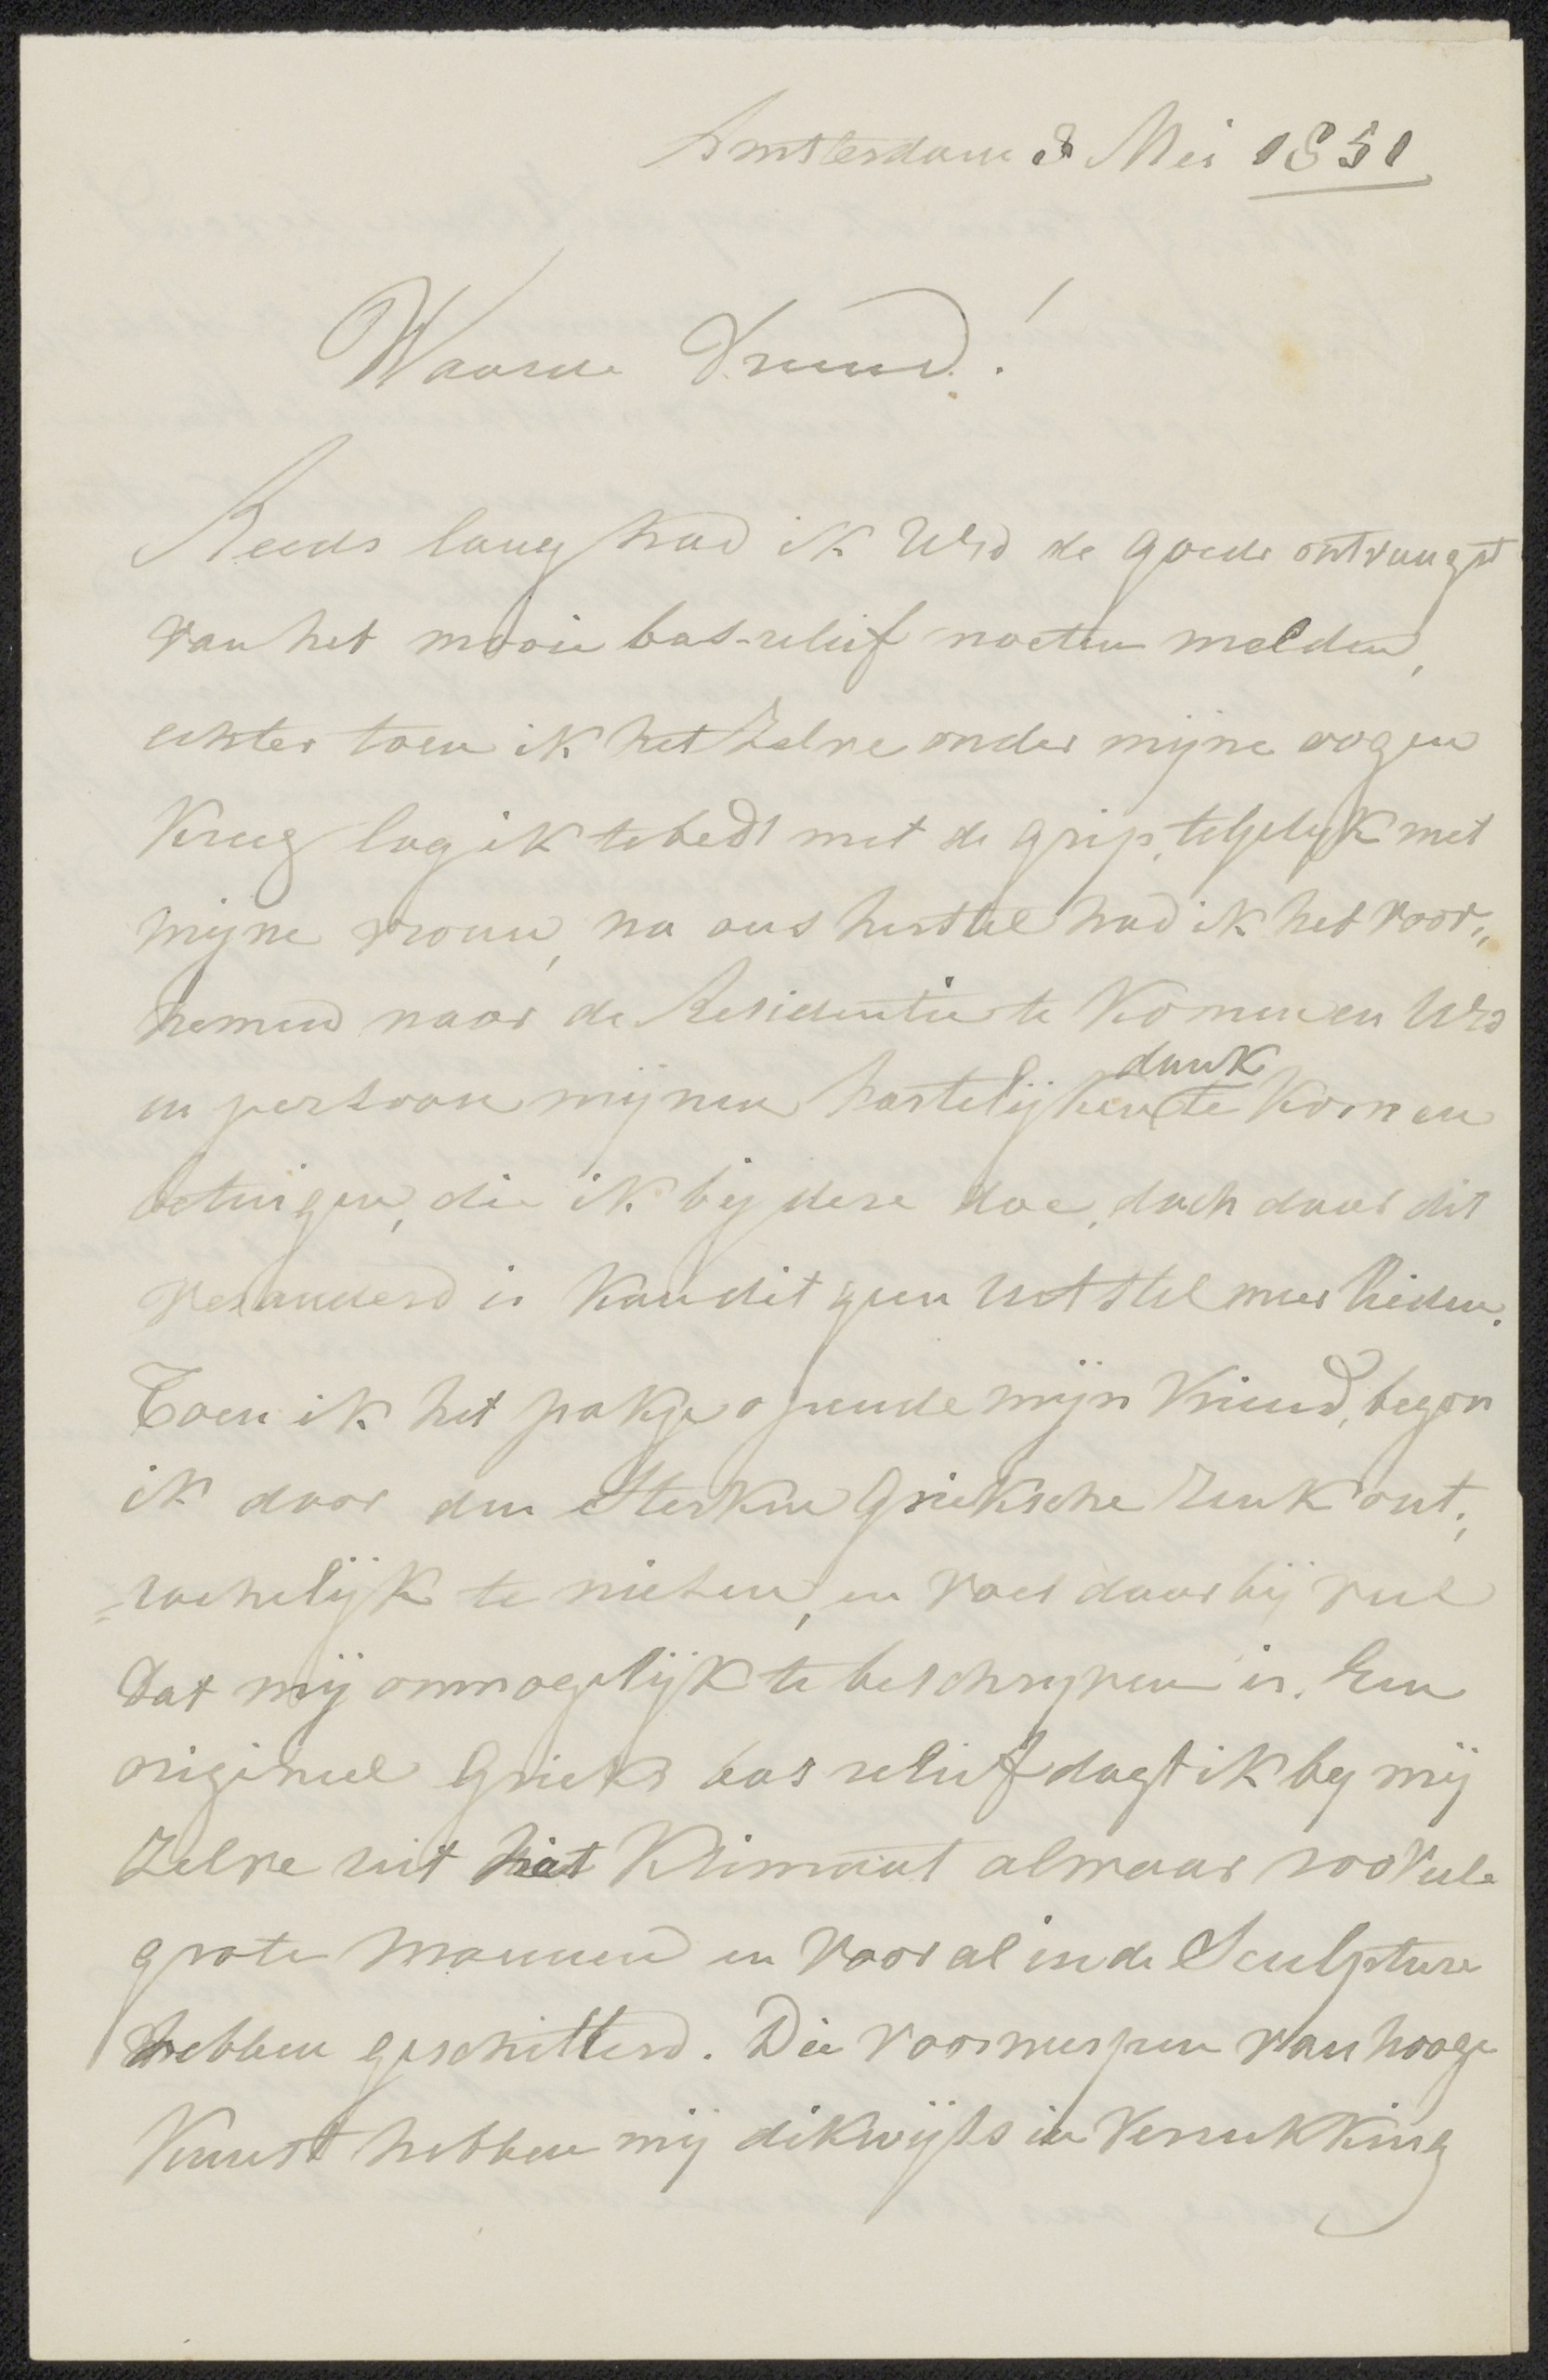 Amsterdam 8 Mei 1851
Waarde Vriend!
Reeds lang had ik UEd de goede ontvangst
van het mooie bas-relief moeten melden,
echter toen ik het zelve onder mijne oogen
kreeg lag ik te bedt met de grip, telgelyk met
mijne vrouw, na ons herstel had ik het voor„
nemend naar de Residentie te komen en UEd
in persoon mijnen hartelijken dank te komen
betuigen, die ik bij deze doe, doch daar dit
veranderd is kan dit geen uitstel meer lieden.
Toen ik het pakje opende mijn Vriend, begon
ik door den sterken Grieksche reuk ont„
=rochelijk te niezen, en voel daar bij veel
dat mij onmogelijk te beschryven is. Een
origineel Grieks bas relief dagt ik by mij
zelve uit het Klimaat alwaar zoo vele
grote mannen en voor al in de Sculpture
hebben geschitterd. Die voorwerpen van hooge
Kunst hebben mij dikwijls in Verrukking